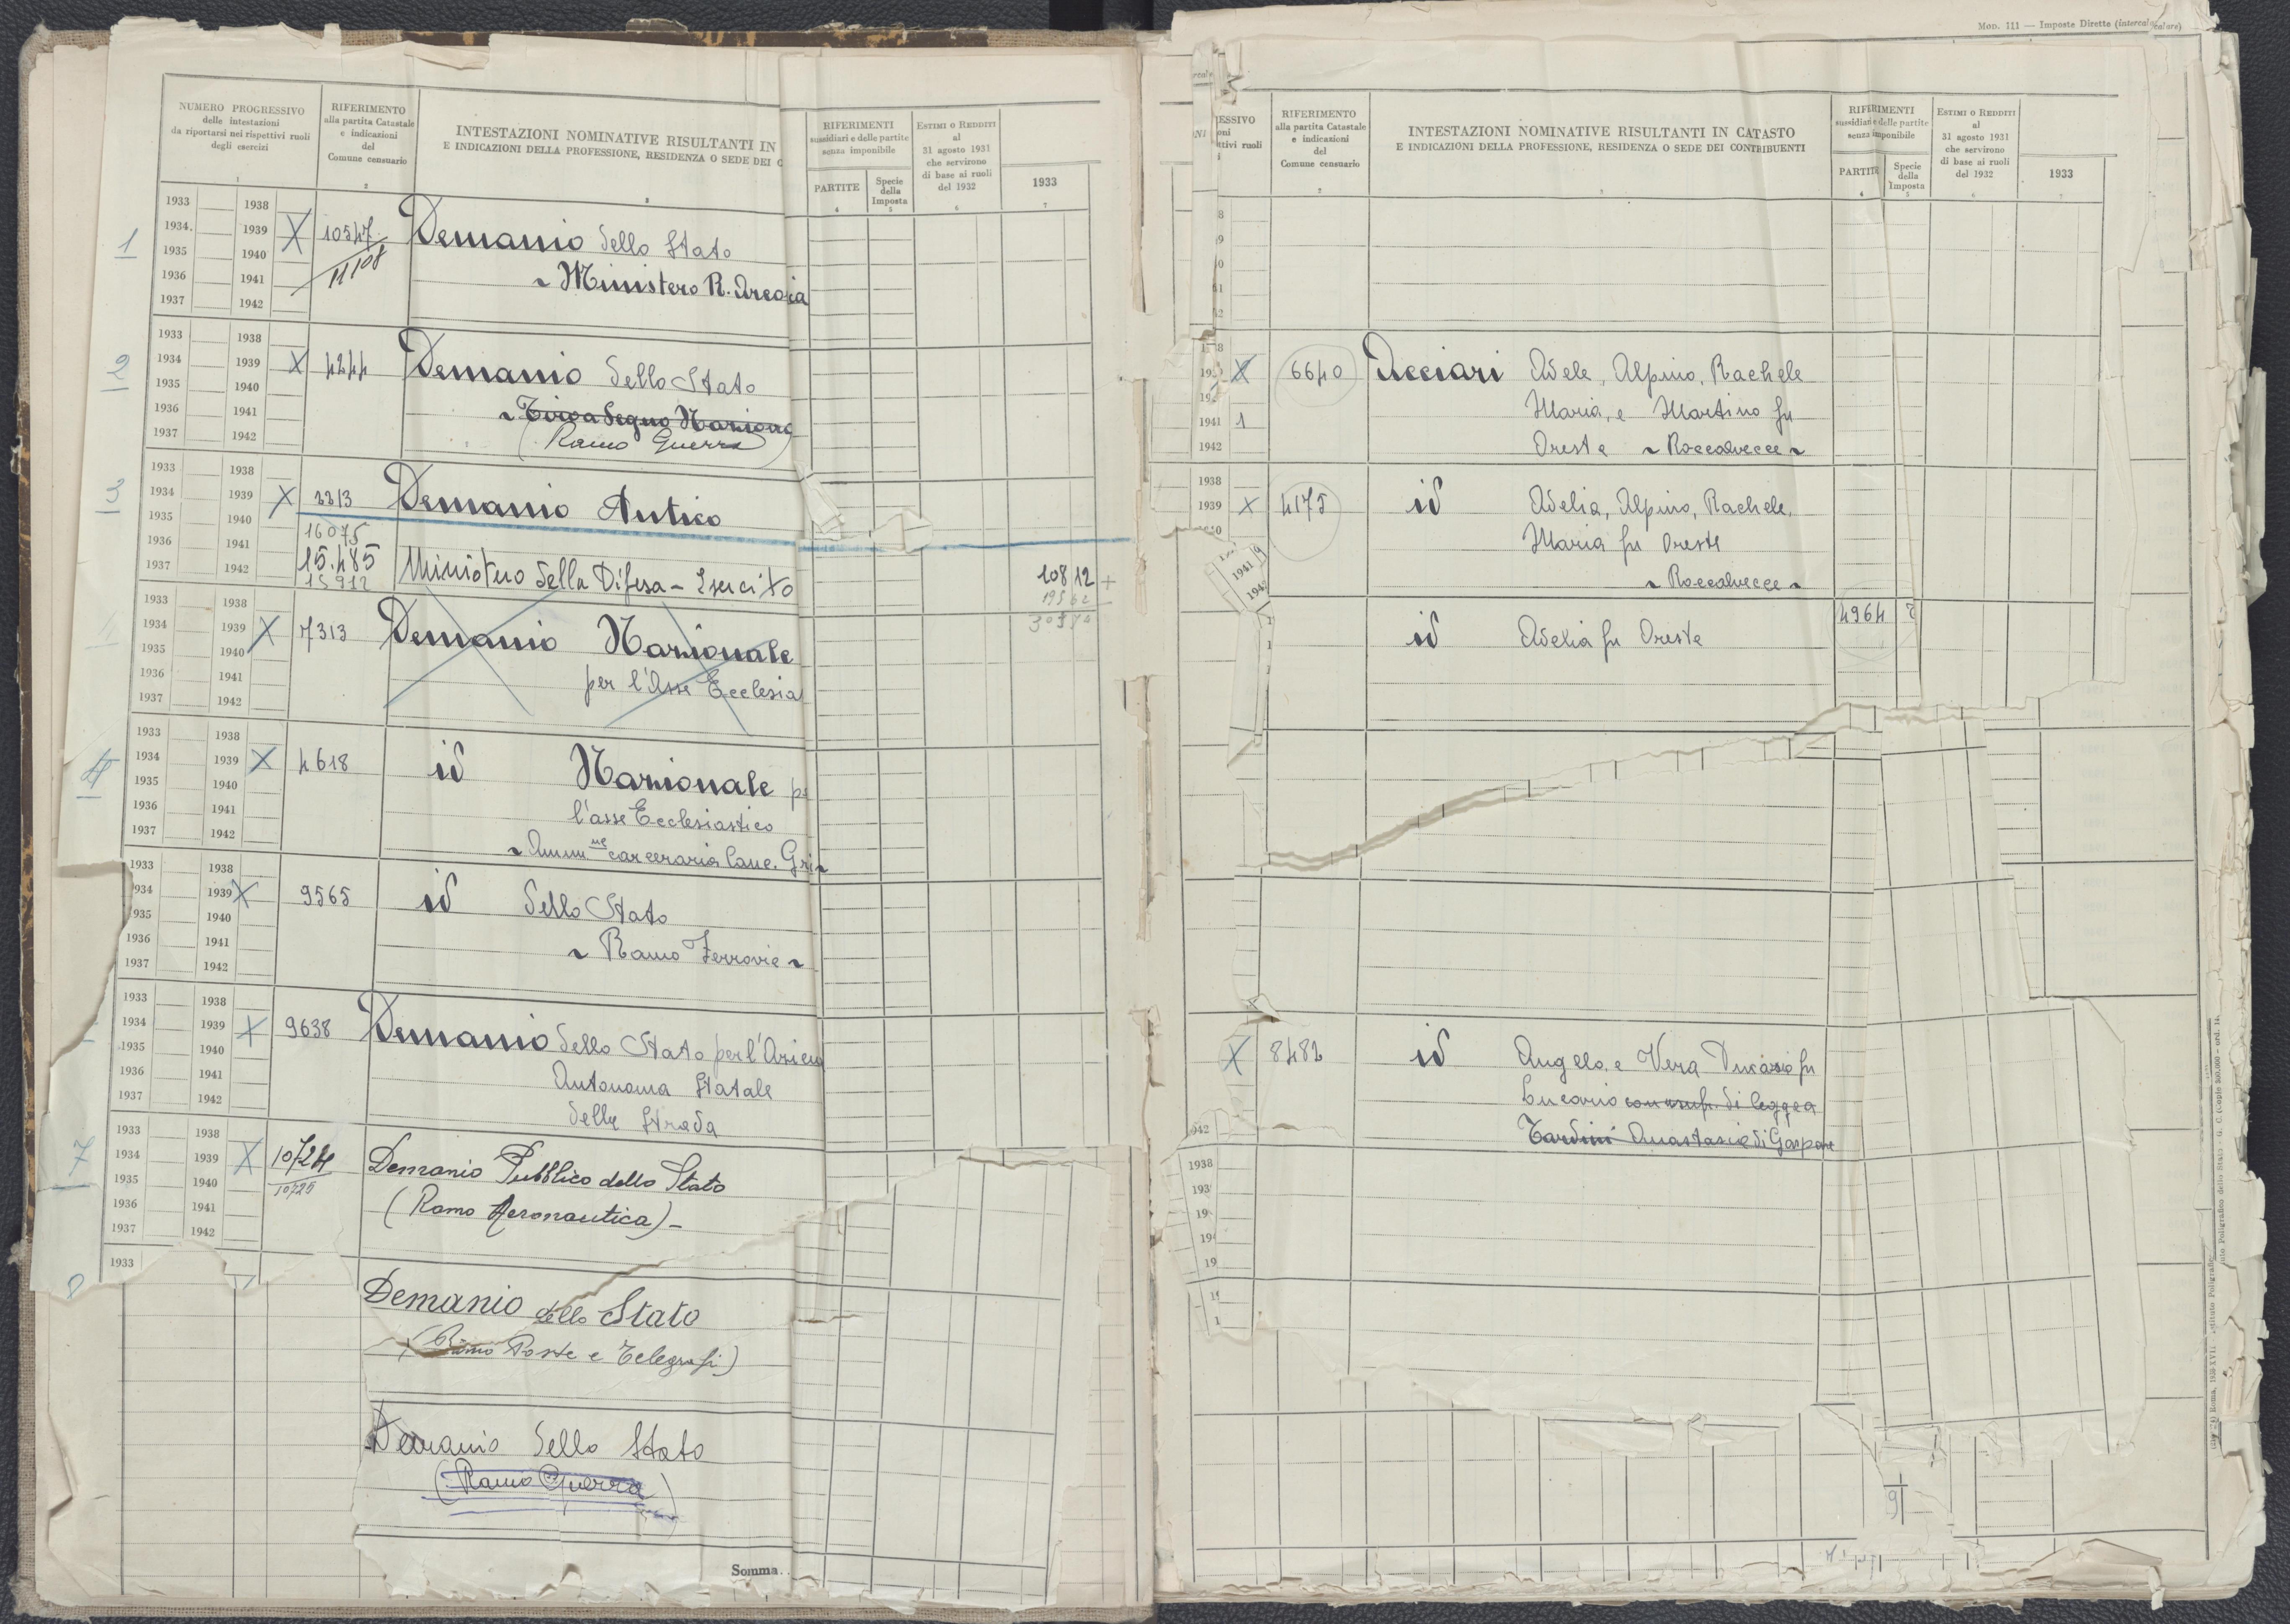 NUMERO PROGRESSIVO
delle intestazioni
da riportarsi nei rispettivi ruoli
degli esercizi
1
RIFERIMENTO
alla partita Catastale
e indicazioni
del
Comune censuario
2
INTESTAZIONI NOMINATIVE RISULTANTI IN
E INDICAZIONI DELLA PROFESSIONE, RESIDENZA O SEDE DEI C
3
RIFERIMENTI
sussidiari e delle partite
senza imponibile
PARTITE
4
Specie
della
Imposta
5
ESTIMI O REDDITI
al
31 agosto 1931
che servirono
di base ai ruoli
del 1932
6
1933
7
1
1933 1938
1934 1939 X
1935 1940
1936 1941
1937 1942
10547
11108
Demanio dello Stato
~ Ministero R. Areo
2
1933 1938
1934 1939 X
1935 1940
1936 1941
1937 1942
4244
Demanio dello Stato
~ Tiro a Segno Naziona
(Ramo Guerra)
3
1933 1938
1934 1939 X
1935 1940
1936 1941
1937 1942
3313
Demanio Antico
16075
15.485
15912
Ministero della Difesa - Esercito
10812 +
1933 1938
1934 1939 X
1935 1940
1936 1941
1937 1942
7313
Demanio Nazionale
per l'Asse Ecclesia
4
1933 1938
1934 1939 X
1935 1940
1936 1941
1937 1942
4618
id Nazionale pe
l'asse Ecclesiastico
~ Amm.ne carceraria Canc. Gri ~
1933 1938
934 1939 X
935 1940
1936 1941
1937 1942
9565
id dello Stato
~ Ramo Ferrovie ~
1933 1938
1934 1939 X
1935 1940
1936 1941
1937 1942
9638
Demanio dello Stato per l'Azien
Autonoma Statale
della Strada
7
1933 1938
1934 1939 X
1935 1940
1936 1941
1937 1942
10724
10725
Demanio Pubblico dello Stato
(Ramo Aeronautica) -
8
1933
Demanio dello Stato
(Ramo Poste e Telegrafi)
Demanio dello Stato
(Ramo Guerra)
Somma
MOD. 111 — Imposte Dirette (intercalare)
ESSIVO
oni
ttivi ruoli
RIFERIMENTO
alla partita Catastale
e indicazioni
del
Comune censuario
2
INTESTAZIONI NOMINATIVE RISULTANTI IN CATASTO
E INDICAZIONI DELLA PROFESSIONE, RESIDENZA O SEDE DEI CONTRIBUENTI
3
RIFERIMENTI
sussidiari e delle partite
senza imponibile
PARTITE
4
Specie
della
Imposta
5
ESTIMI O REDDITI
al
31 agosto 1931
che servirono
di base ai ruoli
del 1932
6
1933
7
X
1941 1
1942
6640
Acciari Adele, Alpino, Rachele
Maria, e Martino fu
Oreste ~ Roccalvecce ~
1938
1939 X
4175
id Adelia, Alpino, Rachele,
Maria fu Oreste
~ Roccalvecce ~
1941
1942
id Adelia fu Oreste
4964
X
8482
id Angelo e Vera Ducario fu
Lucario con usufr. di legge a
Tardini Anastasia di Gaspare
942
1938
193
19
194
19
9